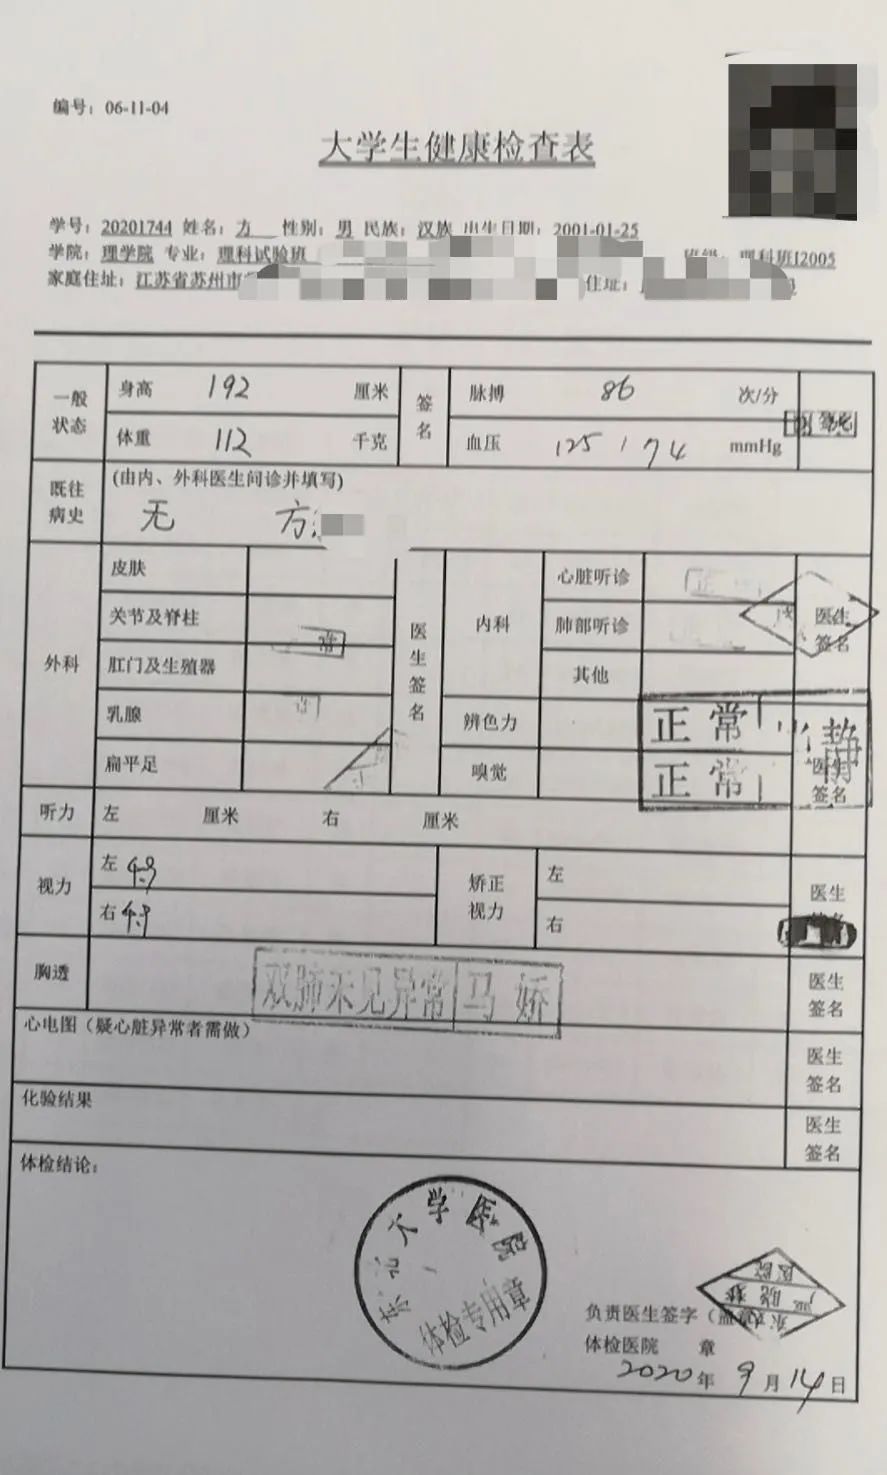 编号：06-11-04
大学生健康检查表
学号：20201744 姓名：方 性别：男 民族：汉族 出生日期：2001-01-25
学院：理学院 专业：理科试验班 班级：理科班I2005
家庭住址：江苏省苏州市 住址：
一般状态 身高 192 厘米 签名 脉搏 86 次/分
体重 112 千克 血压 125 / 74 mmHg 签名
既往病史 (由内、外科医生问诊并填写)
无 方
外科 皮肤 医生签名 内科 心脏听诊 正 医生签名
关节及脊柱 肺部听诊
肛门及生殖器 常 其他
乳腺 辨色力 正常
扁平足 嗅觉 正常 医生签名
听力 左 厘米 右 厘米
视力 左 4.9 矫正视力 左 医生
右 4.9 右
胸透 双肺未见异常 马娇 医生签名
心电图（疑心脏异常者需做） 医生签名
化验结果 医生签名
体检结论：
东北大学医院
体检专用章
医院
东大
负责医生签字（盖章
体检医院 章
2020年 9月 14日